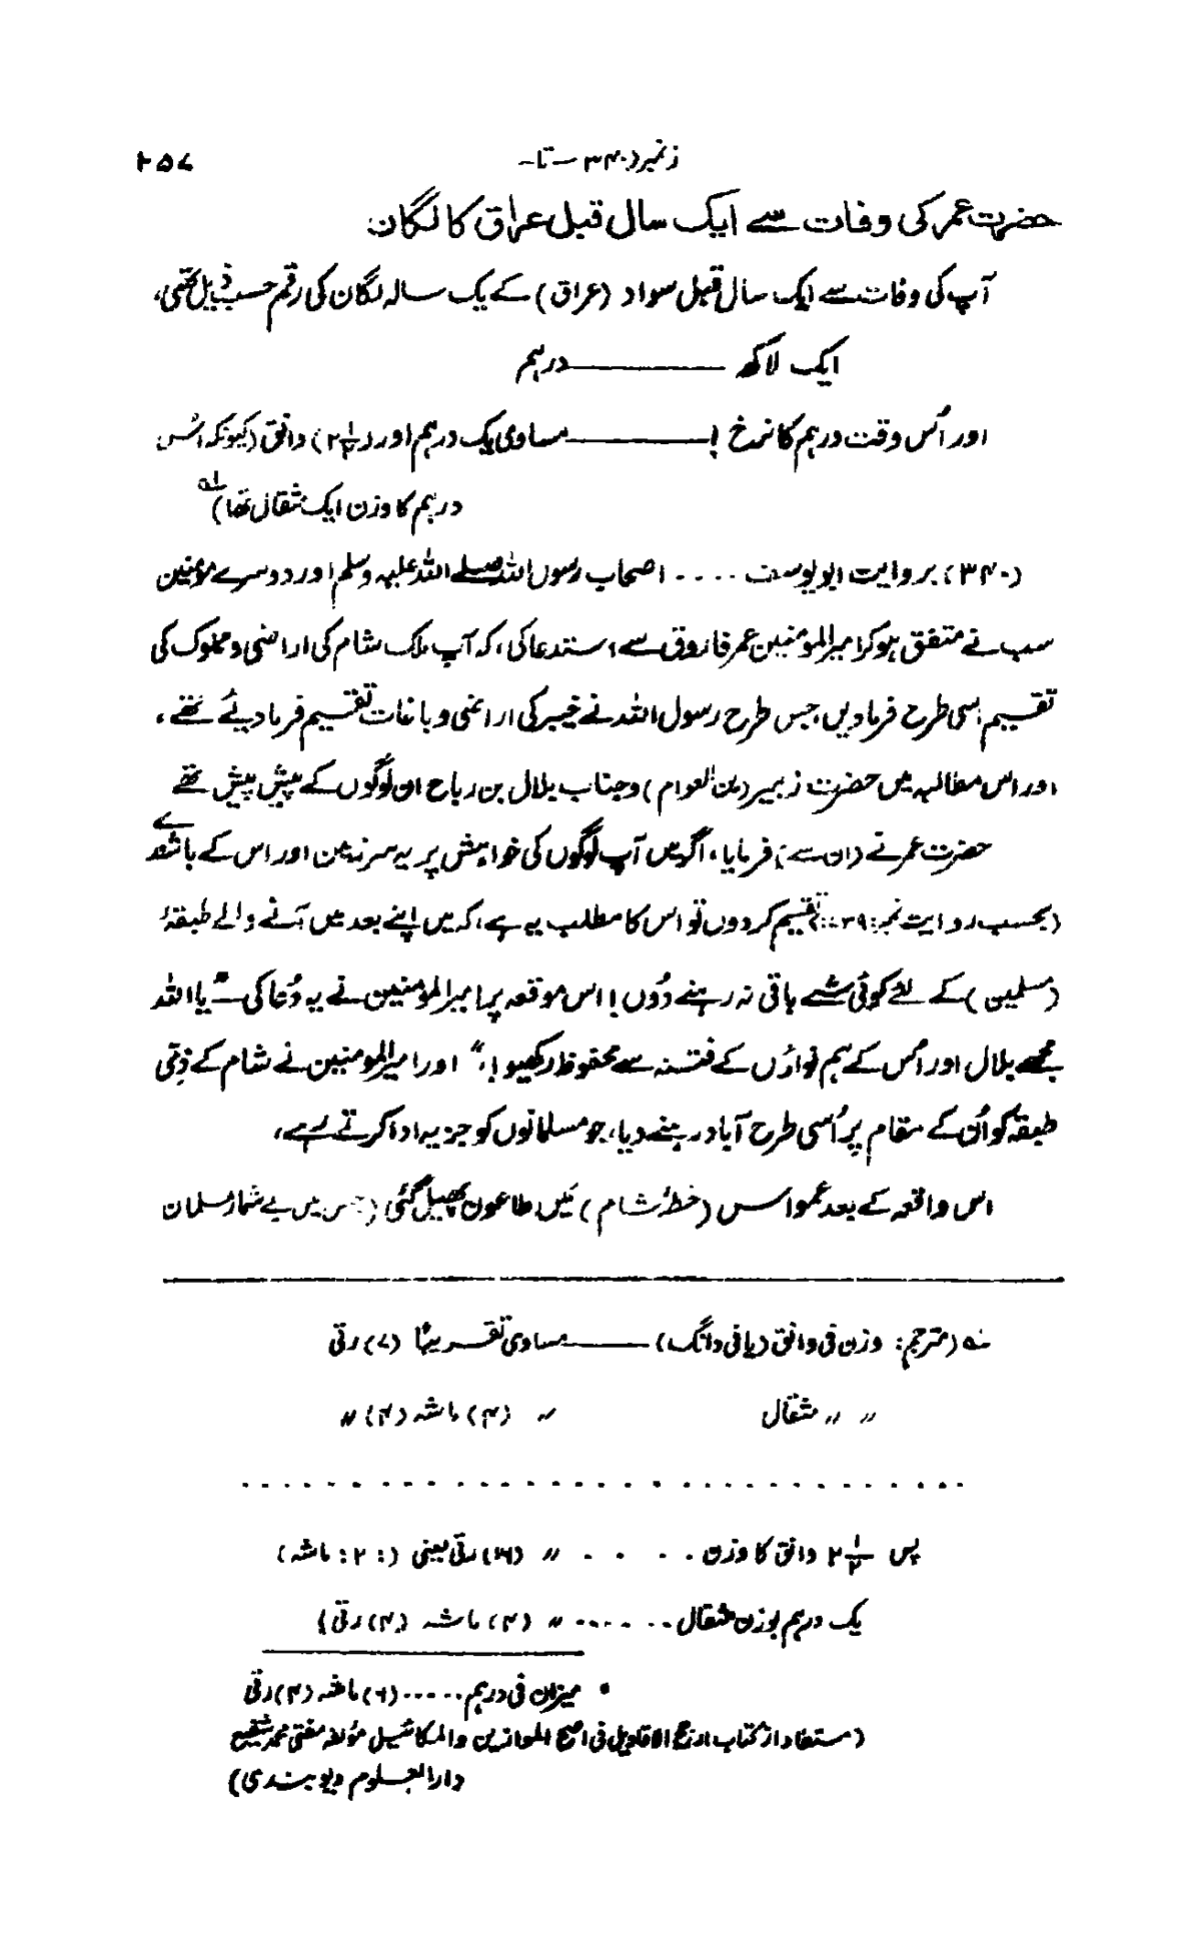 زنمبر(۳۴۰ — تا— ۲۵۷
حضرت عمر کی وفات سے ایک سال قبل عراق کا لگان
آپ کی وفات سے ایک سال قبل سواد (عراق) کے یک سالہ لگان کی رقم حسب ذیل تھی،
ایک لاکھ ——— درہم
اور اُس وقت درہم کا نرخ ! ——— مساوی یک درہم اور (۲½) دانق (کیونکہ اُس
درہم کا وزن ایک مثقال تھا)؎
(۳۴۰) بروایت ابو یوسف .... اصحاب رسول اللہ صلے اللہ علیہ وسلم اور دوسرے مومنین
سب نے متفق ہو کر امیر المومنین عمر فاروق سے استدعا کی، کہ آپ ملک شام کی اراضی و مملوک کی
تقسیم اُسی طرح فرما دیں، جس طرح رسول اللہ نے خیبر کی اراضی و باغات تقسیم فرما دیئے تھے،
اور اس مطالبہ میں حضرت زبیر (بن العوام) و جناب بلال بن رباح ان لوگوں کے پیش پیش تھے
حضرت عمر نے (ان سے) فرمایا، اگر میں آپ لوگوں کی خواہش پر یہ سرزمین اور اس کے باشندے
(بحسب روایت نمبر: ۳۹) تقسیم کر دوں تو اس کا مطلب یہ ہے، کہ میں اپنے بعد میں آنے والے طبقۂ
(مسلمین) کے لئے کوئی شے باقی نہ رہنے دوں! اس موقعہ پر امیر المومنین نے یہ دُعا کی — "یا اللہ
مجھے بلال اور اُس کے ہم نواؤں کے فتنہ سے محفوظ رکھیو!،" اور امیر المومنین نے شام کے ذِمّی
طبقہ کو اُن کے مقام پر اُسی طرح آباد رہنے دیا، جو مسلمانوں کو جزیہ ادا کرتے رہے،
اس واقعہ کے بعد عمواس (خطۂ شام) میں طاعون پھیل گئی (جس میں بے شمار مسلمان
؎ (مترجم: وزن فی دانق (یا فی دانگ) ——— مساوی تقریباً (۷) رتی
〃 〃 مثقال 〃 (۴) ماشہ (۴) 〃
. . . . . . . . . . . . . . . . . . . . . . . . . . . .
پس ۲½ دانق کا وزن . . . . 〃 (۱۶) رتی یعنی (:۲: ماشہ)
یک درہم بوزن مثقال ...... 〃 (۴) ماشہ (۴) رتی)
• میزان فی درہم ..... (۶) ماشہ (۴) رتی
(مستفاد از کتاب ارجح الاقاویل فی اصح الموازین والمکائیل مؤلفہ مفتی محمد شفیع
دار العلوم دیوبندی)